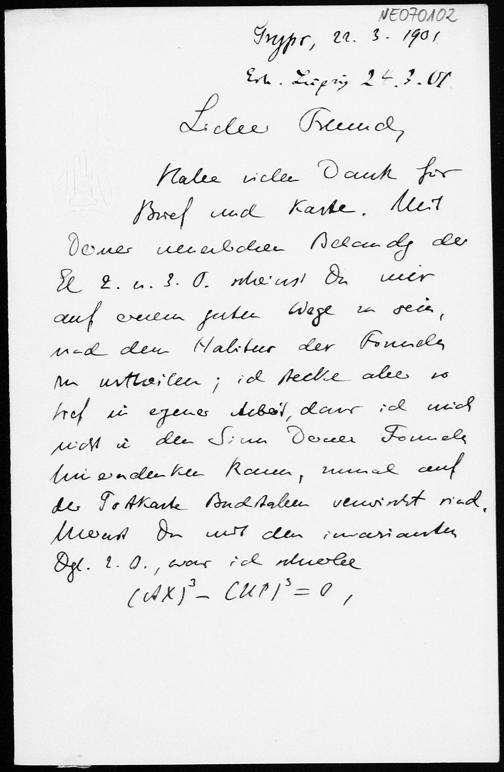 NE070102
Gryps, 22. 3. 1901
Erh. Leipzig 24.3.01
Lieber Freund,
Habe vielen Dank für
Brief und Karte. Mit
Deiner neuerlichen Behandlg der
El 2. u. 3. O. scheinst Du mir
auf einem guten Wege zu sein,
nach dem Habitus der Formeln
zu urtheilen; ich stecke aber so
tief in eigener Arbeit, dass ich mich
nicht in den Sinn Deiner Formeln
hineindenken kann, zumal auf
der Postkarte Buchstaben verwischt sind.
Meinst Du mit den invarianten
Dgl. 2. O., was ich schreibe
(AX)³ – (UP)³ = 0,